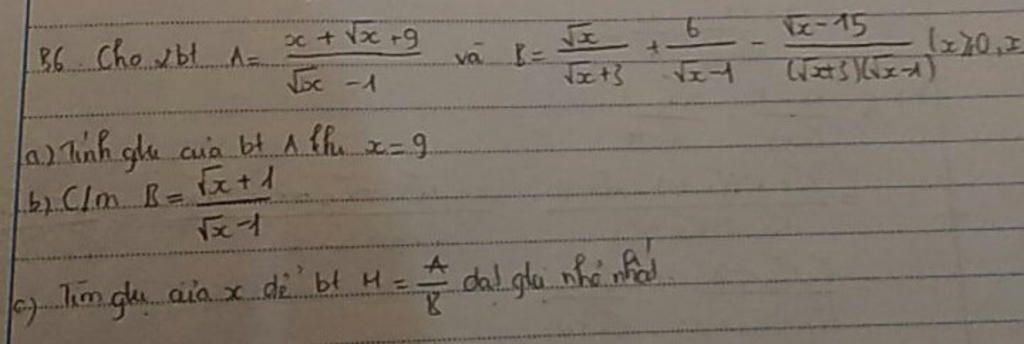 B6. Cho 2bt A = (x + √x + 9)/(√x - 1) và B = √x/(√x+3) + 6/(√x-1) - (√x-15)/((√x+3)(√x-1)) (x≥0, x
a) Tính gtrị của bt A khi x = 9
b) C/m B = (√x + 1)/(√x - 1)
c) Tìm gtrị của x để bt M = A/B đạt gtrị nhỏ nhất